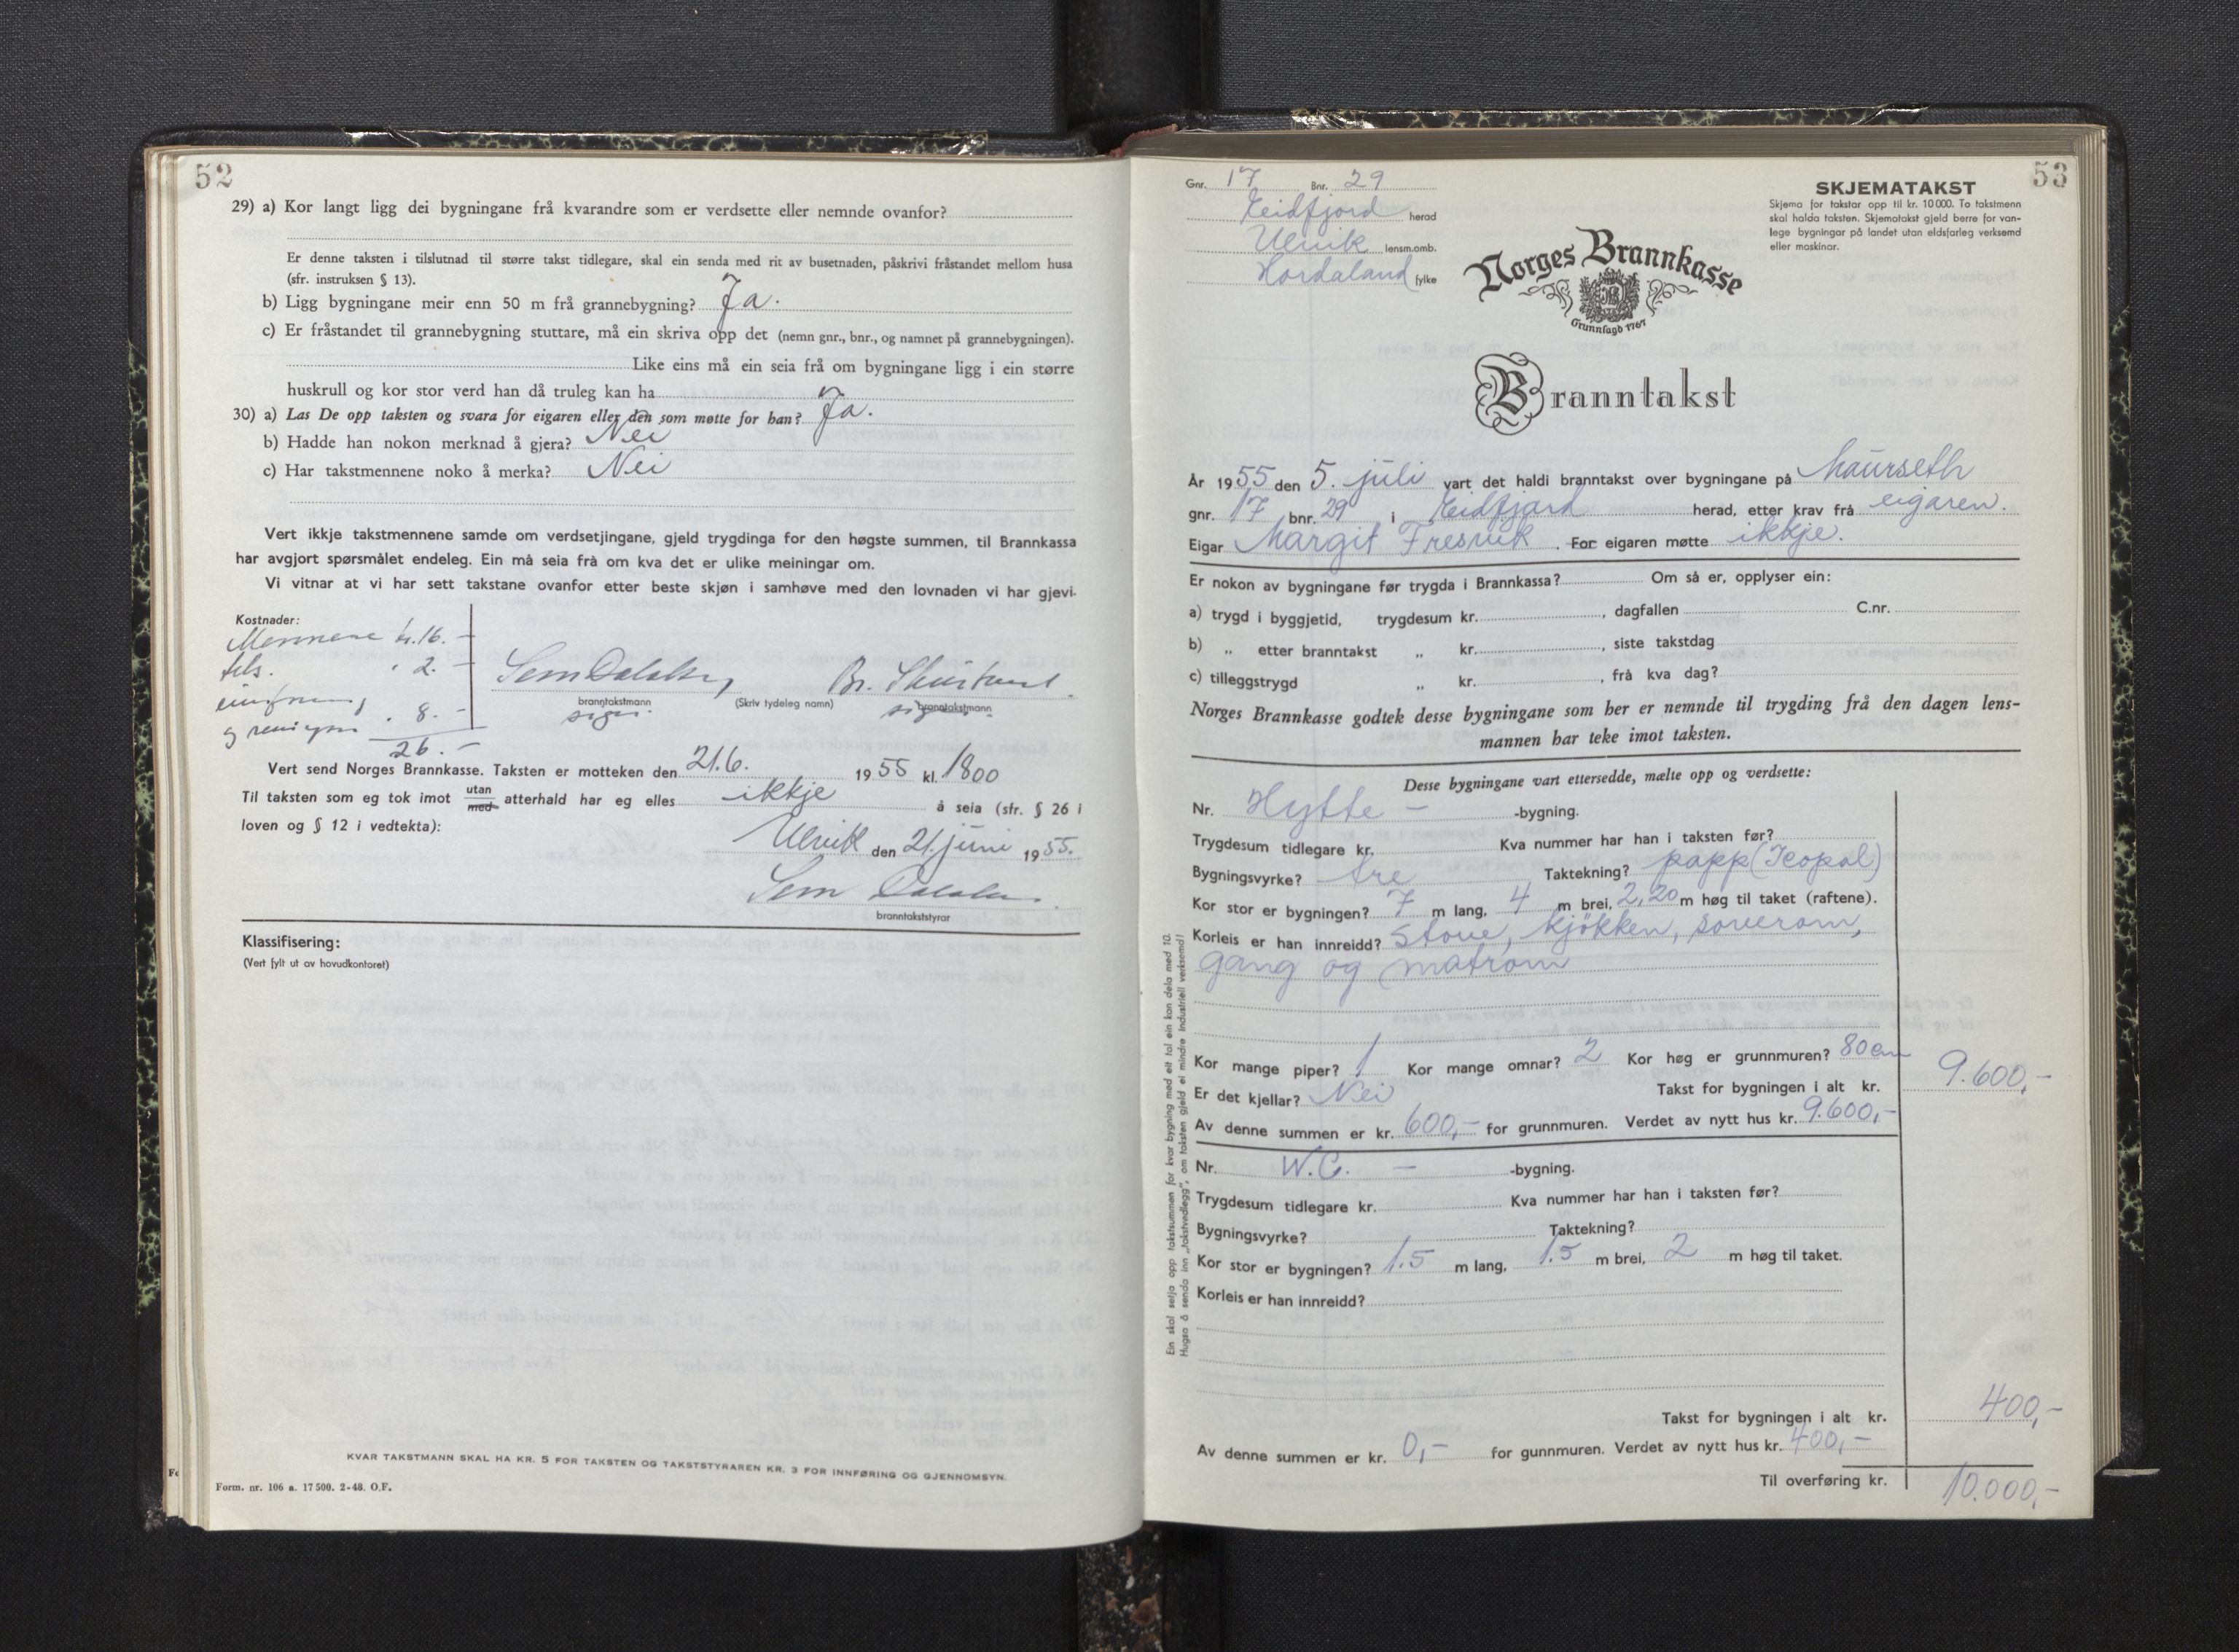 52
29) a) Kor langt ligg dei bygningane frå kvarandre som er verdsette eller nemnde ovanfor?
Er denne taksten i tilslutnad til større takst tidlegare, skal ein senda med rit av busetnaden, påskrivi fråstandet mellom husa
(sfr. instruksen § 13).
b) Ligg bygningane meir enn 50 m frå grannebygning? Ja.
c) Er fråstandet til grannebygning stuttare, må ein skriva opp det (nemn gnr., bnr., og namnet på grannebygningen).
Like eins må ein seia frå om bygningane ligg i ein større
huskrull og kor stor verd han då truleg kan ha
30) a) Las De opp taksten og svara for eigaren eller den som møtte for han? Ja.
b) Hadde han nokon merknad å gjera? Nei
c) Har takstmennene noko å merka? Nei
Vert ikkje takstmennene samde om verdsetjingane, gjeld trygdinga for den høgste summen, til Brannkassa
har avgjort spørsmålet endeleg. Ein må seia frå om kva det er ulike meiningar om.
Vi vitnar at vi har sett takstane ovanfor etter beste skjøn i samhøve med den lovnaden vi har gjevi.
Kostnader:
Mennene kr. 16.-
2.-
8.-
26.-
branntakstmann
(Skriv tydeleg namn)
branntakstmann
sign.
sign.
Vert send Norges Brannkasse. Taksten er motteken den 21.6. 1955 kl. 1800
Til taksten som eg tok imot utan med atterhald har eg elles ikkje å seia (sfr. § 26 i
loven og § 12 i vedtekta):
Ulvik den 21. juni 1955.
branntakststyrar
Klassifisering:
(Vert fylt ut av hovudkontoret)
KVAR TAKSTMANN SKAL HA KR. 5 FOR TAKSTEN OG TAKSTSTYRAREN KR. 3 FOR INNFØRING OG GJENNOMSYN.
Form. nr. 106 a. 17 500. 2-48. O.F.
53
Gnr. 17 Bnr. 29
Eidfjord herad
Ulvik lensm.omb.
Hordaland fylke
SKJEMATAKST
Skjema for takstar opp til kr. 10 000. To takstmenn
skal halda taksten. Skjematakst gjeld berre for van-
lege bygningar på landet utan eldsfarleg verksemd
eller maskinar.
Norges Brannkasse
Grunnlagd 1767
Branntakst
År 1955 den 5. juli vart det haldi branntakst over bygningane på Maurseth
gnr. 17 bnr. 29 i Eidfjord herad, etter krav frå eigaren.
Eigar Margit Fresvik. For eigaren møtte ikkje.
Er nokon av bygningane før trygda i Brannkassa? Om så er, opplyser ein:
a) trygd i byggjetid, trygdesum kr. , dagfallen C.nr.
b) „ etter branntakst „ kr. , siste takstdag
c) tilleggstrygd „ kr. , frå kva dag?
Norges Brannkasse godtek desse bygningane som her er nemnde til trygding frå den dagen lens-
mannen har teke imot taksten.
Desse bygningane vart ettersedde, mælte opp og verdsette:
Nr. Hytte - -bygning.
Trygdesum tidlegare kr. Kva nummer har han i taksten før?
Bygningsvyrke? tre Taktekning? papp (Icopal)
Kor stor er bygningen? 7 m lang, 4 m brei, 2,20 m høg til taket (raftene).
Korleis er han innreidd? Stove, kjökken, soverom,
gang og matrom
Kor mange piper? 1 Kor mange omnar? 2 Kor høg er grunnmuren? 80 cm
Er det kjellar? Nei Takst for bygningen i alt kr. 9.600,-
Av denne summen er kr. 600,- for grunnmuren. Verdet av nytt hus kr. 9.600,-
Nr. W.C. - -bygning.
Trygdesum tidlegare kr. Kva nummer har han i taksten før?
Bygningsvyrke? Taktekning?
Kor stor er bygningen? 1.5 m lang, 1.5 m brei, 2 m høg til taket.
Korleis er han innreidd?
Takst for bygningen i alt kr. 400,-
Av denne summen er kr. 0,- for gunnmuren. Verdet av nytt hus kr. 400,-
Til overføring kr. 10.000,-
Ein skal setja opp takstsummen for kvar bygning med eit tal ein kan dela med 10.
Hugsa å senda inn „takstvedlegg", om taksten gjeld ei mindre industriell verksemd!